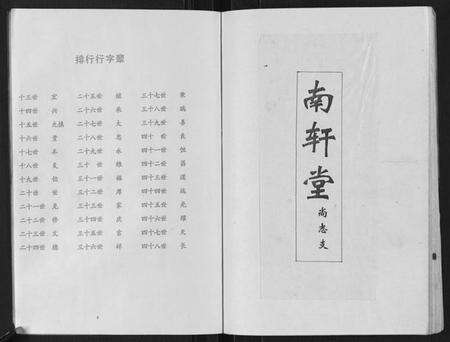 排行行字辈
十三世 二十五世 三十七世 荣
十四世 兴 二十六世 三十八世 瑞
十五世 二十七世 大 三十九世 善
十六世 二十八世 忠 四十世 良
十七世 二十九世 永 四十一世 恒
十八世 三十世 四十二世 昌
十九世 伯 三十一世 四十三世 道
二十世 世 三十二世 厚 四十四世 远
二十一世 三十三世 家 四十五世 光
二十二世 修 三十四世 庆 四十六世 耀
二十三世 文 三十五世 吉 四十七世 久
二十四世 德 三十六世 祥 四十八世 长
南轩堂
尚忠支